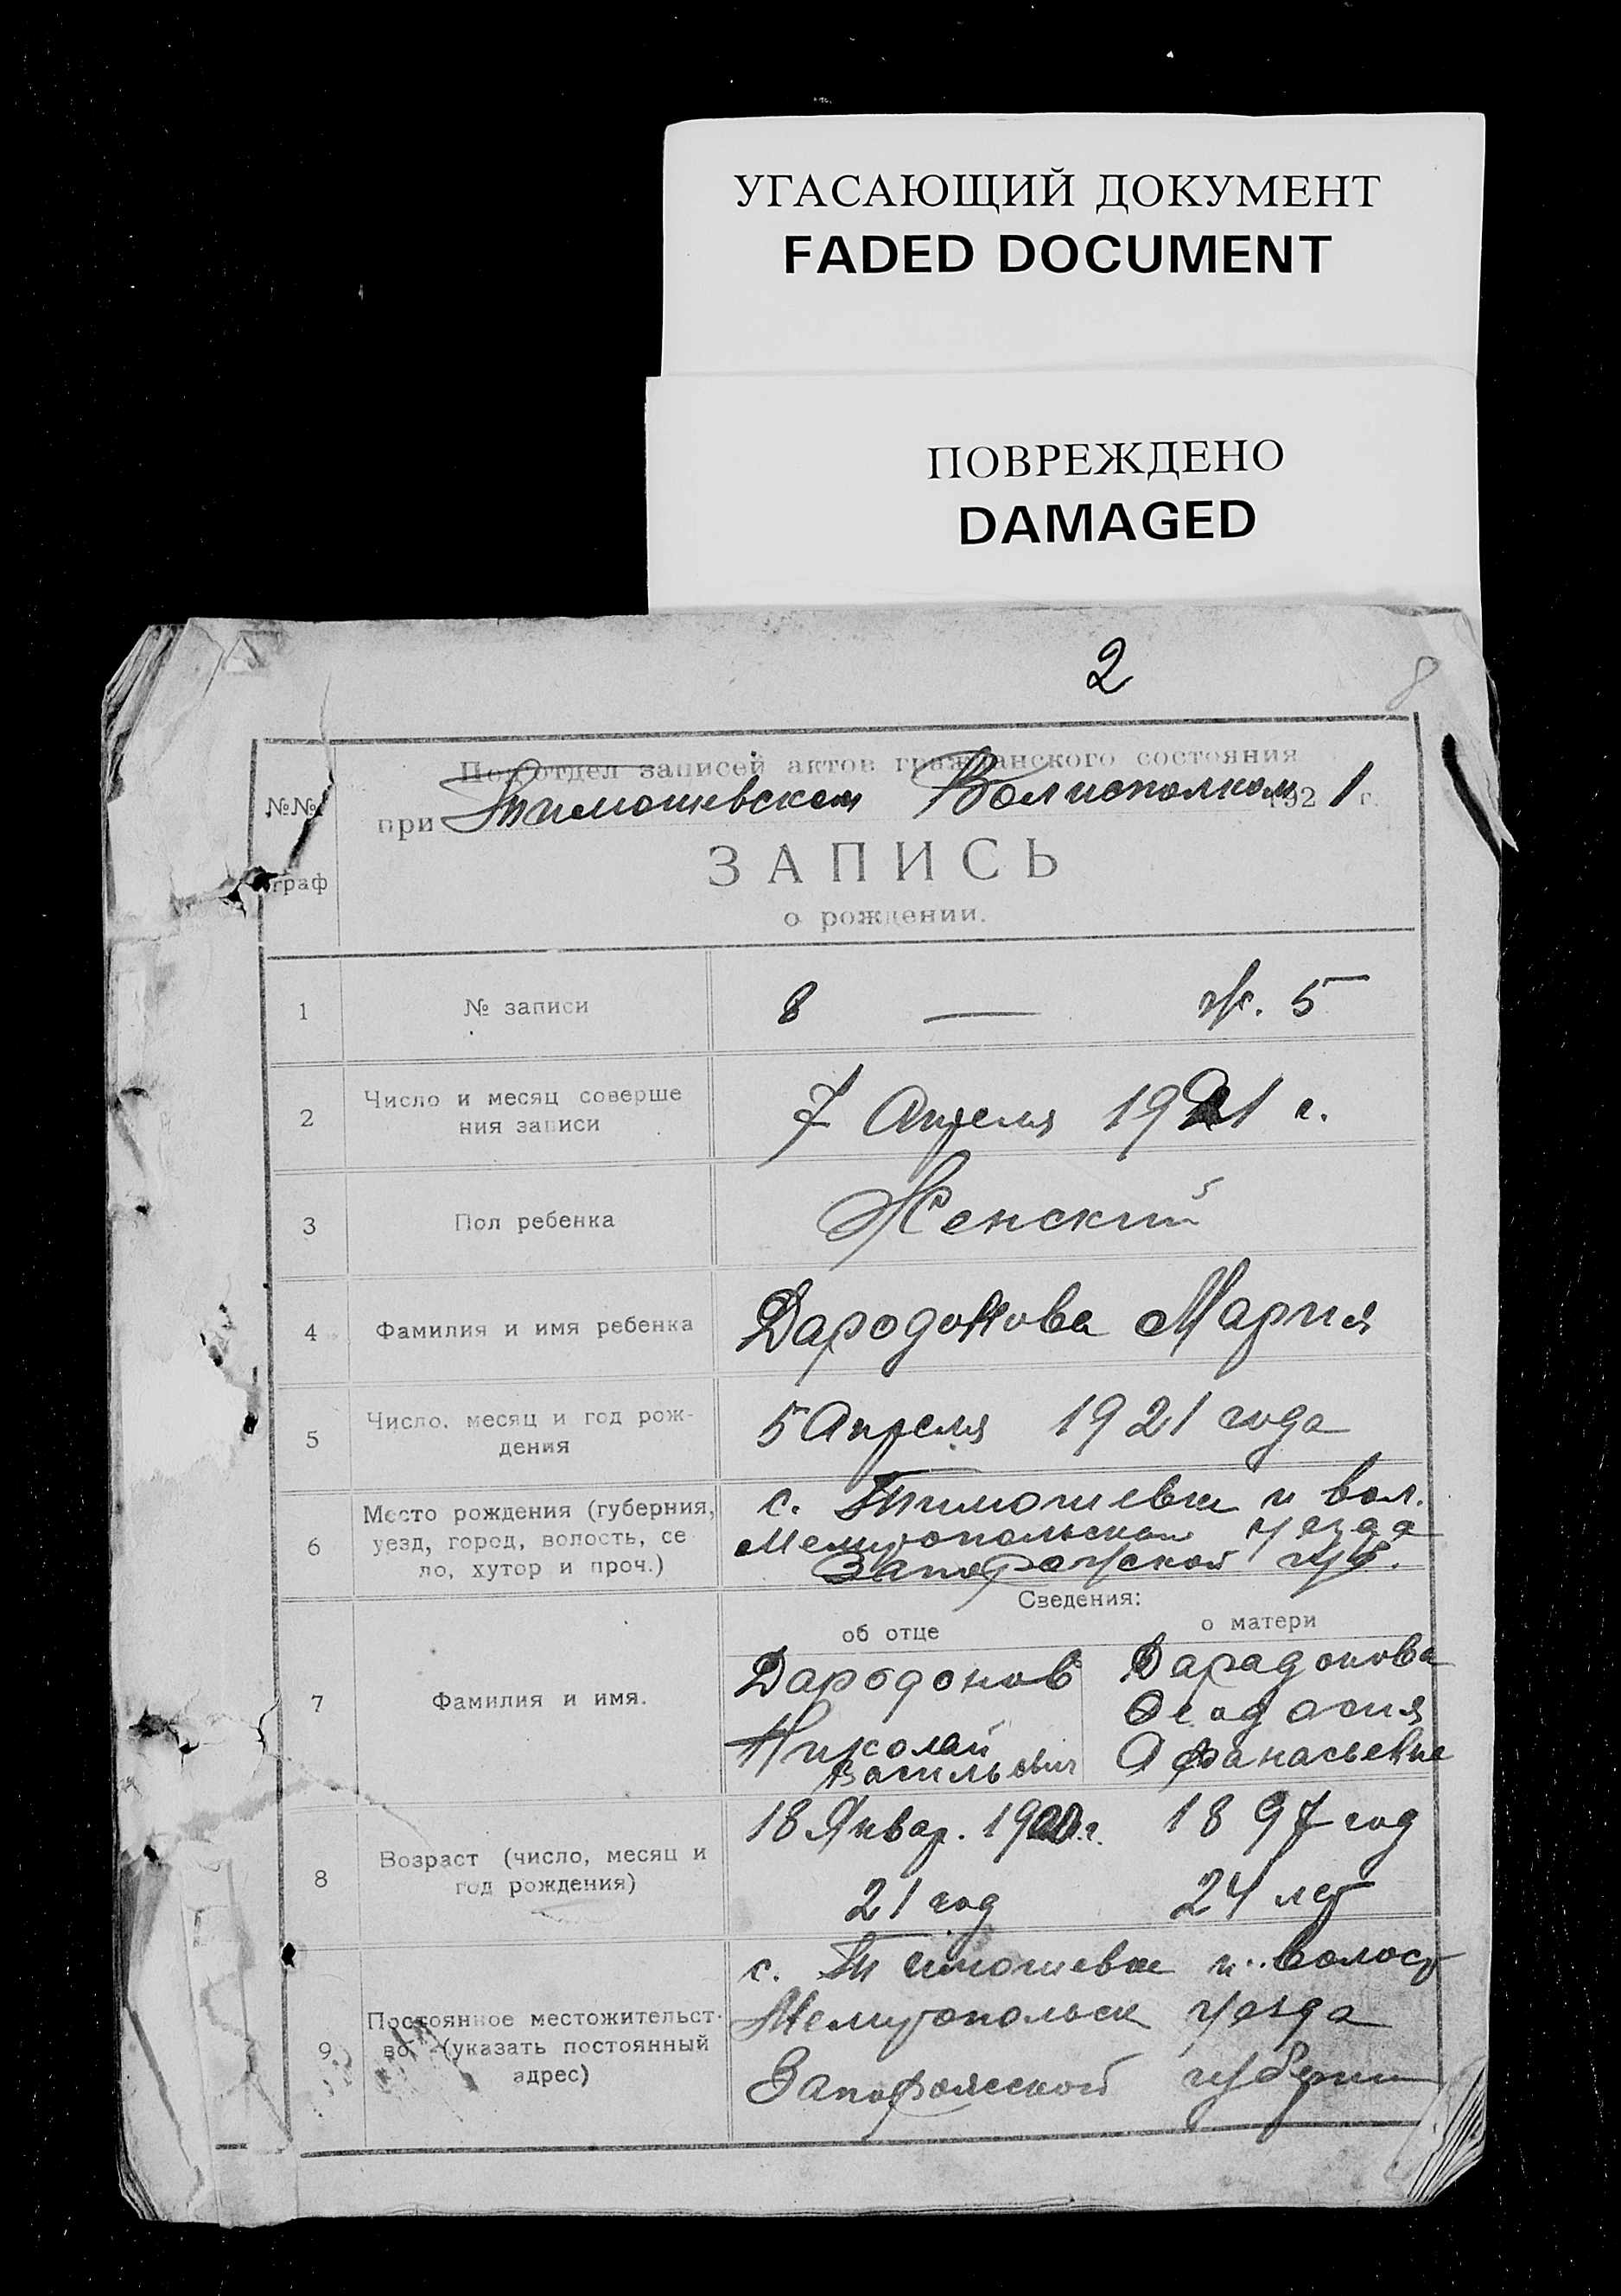 УГАСАЮЩИЙ ДОКУМЕНТ
FADED DOCUMENT
ПОВРЕЖДЕНО
DAMAGED
2
8
№№
граф
Подотдел записей актов гражданского состояния
при Тимошевском Волисполком 1921 г.
ЗАПИСЬ
о рождении.
1 № записи 8 — ж. 5
2 Число и месяц соверше
ния записи
7 Апреля 1921 г.
3 Пол ребенка Женский
4 Фамилия и имя ребенка Дародонова Мария
5 Число, месяц и год рож-
дения
5 Апреля 1921 года
6 Место рождения (губерния,
уезд, город, волость, се
ло, хутор и проч.)
с. Тимошевка и вол.
Мелитопольском уезда
Запорожской губ.
Сведения:
об отце о матери
7 Фамилия и имя.
Дародонов
Николай
Васильевич
Дарадонова
Феодосия
Афанасьевне
8 Возраст (число, месяц и
год рождения)
18 Январ. 1900 г.
21 год
1897 год
24 лет
9 Постоянное местожительст-
во (указать постоянный
адрес)
с. Тимошевка и волост
Мелитопольск уезда
Запорожской губернии